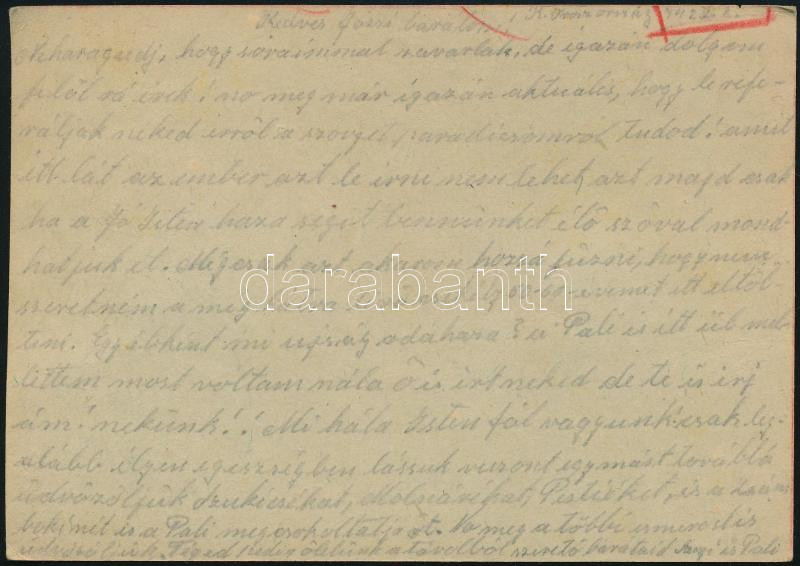 Kedves Józsi barátom! K. Oroszország 1942.
Neharagudj, hogy soraimmal zavarlak, de igazán dolgom
felöl rá érek! no meg már igazán aktuális, hogy le refe-
ráljak neked erröl a szovjet paradicsomról tudod! amit
itt lát az ember azt le irni nem lehet, azt majd csak
ha a Jó Isten haza segit bennünket élö szóval mond-
hatjuk el. Mégcsak azt akarom hozzá füzni, hogy nem
szeretném a meg évemet itt eltöl-
teni. Egyébként mi ujság odahaza? a Pali is itt ül mel-
lettem most voltam nála ö is irt neked de te is irj
ám! nekünk!! Mi hála Isten jól vagyunk csak leg-
alább ilyen egészségben lássuk viszont egymást továbbá
üdvözöljük Molnárékat, Pistiéket, és a
és a Pali meg csokoltatja öt. No meg a többi ismeröst is
üdvözöljük. Téged pedig ölelünk a távolból szeretö barátaid és Pali
darabanth